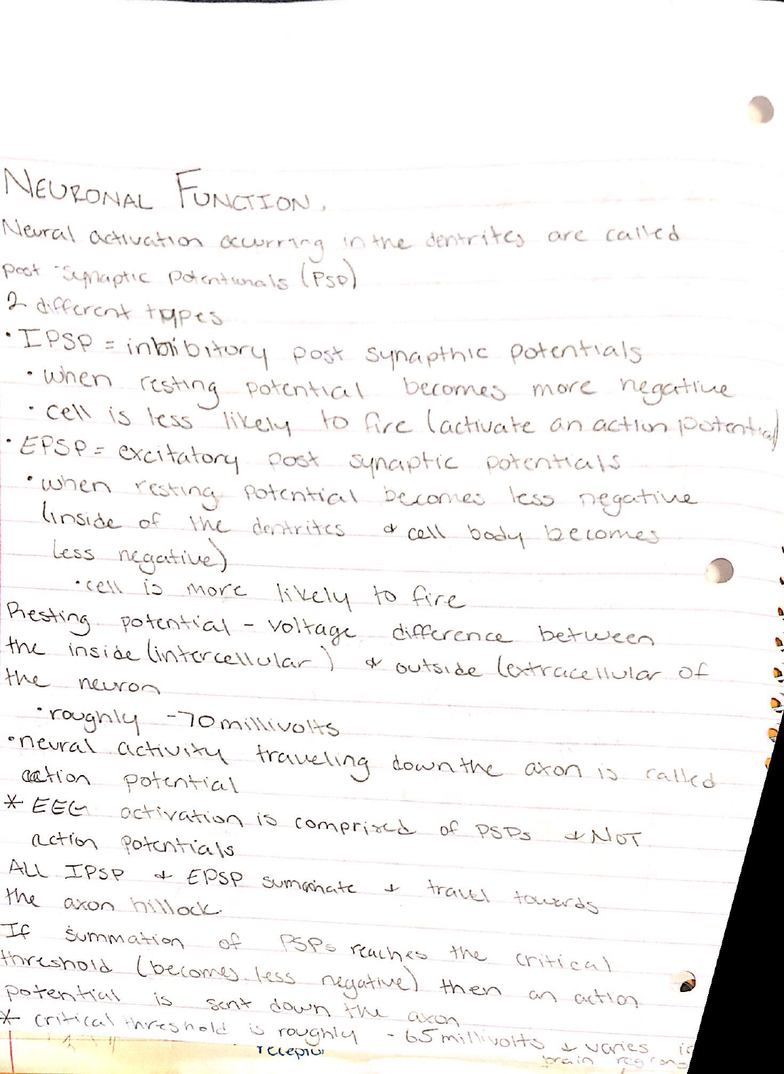 NEURONAL FUNCTION.
Neural activation ocurring in the dentrites are called
post synaptic potentionals (PSP)
2 different types
• IPSP = inhibitory post synapthic potentials
• when resting potential becomes more negative
• cell is less likely to fire (activate an action potential)
• EPSP = excitatory post synaptic potentials
• when resting potential becomes less negative
(inside of the dentrites & cell body becomes
less negative)
• cell is more likely to fire
Resting potential - voltage difference between
the inside (intercellular) & outside (extracellular of
the neuron
• roughly -70 millivolts
• neural activity traveling down the axon is called
action potential
* EEG activation is comprised of PSPs & NOT
action potentials
ALL IPSP & EPSP summate & travel towards
the axon hillock.
If summation of PSPs reaches the critical
threshold (becomes less negative) then an action
potential is sent down the axon
* critical threshold is roughly -65 millivolts & varies
brain regions